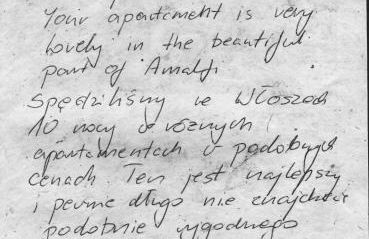 Your apartament is very
lovely in the beautiful
part of Amalfi.
Spędziliśmy we Włoszech
10 nocy w różnych
apartamentach w podobnych
cenach. Ten jest najlepszy
i pewnie długo nie znajdziecie
podobnie wygodnego